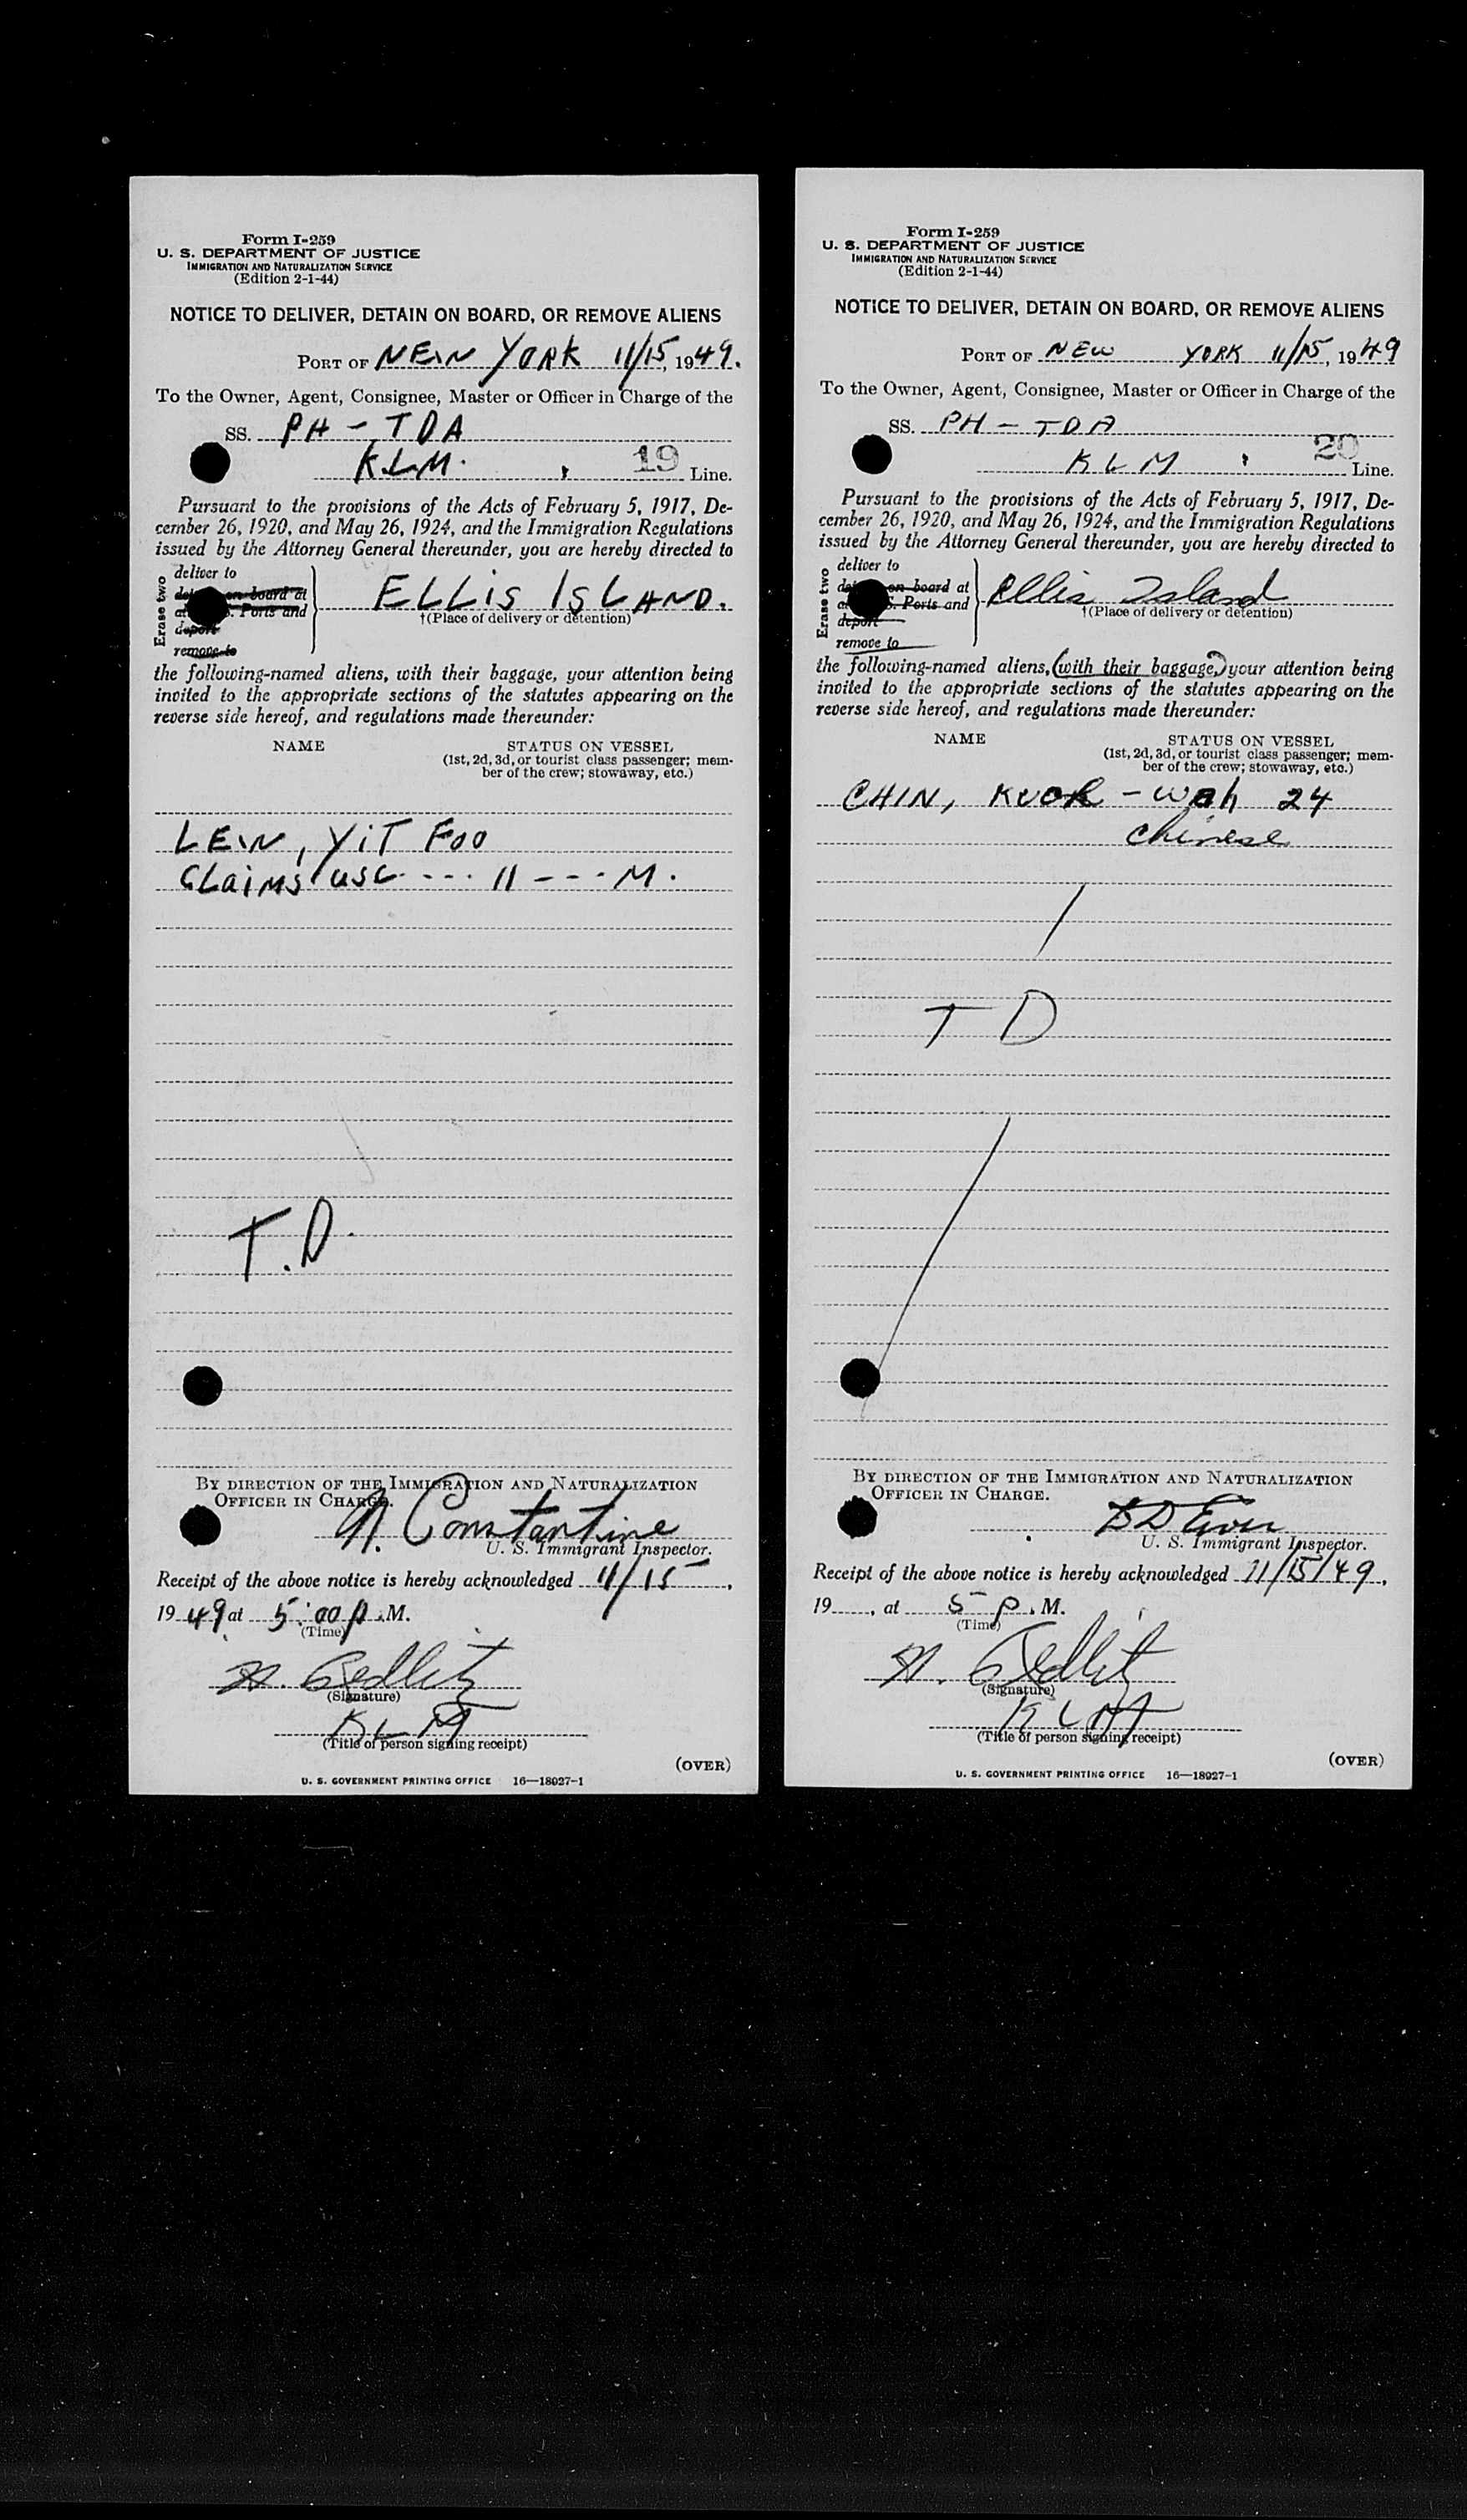 Form I-259
U. S. DEPARTMENT OF JUSTICE
IMMIGRATION AND NATURALIZATION SERVICE
(Edition 2-1-44)
NOTICE TO DELIVER, DETAIN ON BOARD, OR REMOVE ALIENS
PORT OF NEW YORK 11/15, 1949.
To the Owner, Agent, Consignee, Master or Officer in Charge of the
SS. PH - TDA
K.L.M. , 19 Line.
Pursuant to the provisions of the Acts of February 5, 1917, De-
cember 26, 1920, and May 26, 1924, and the Immigration Regulations
issued by the Attorney General thereunder, you are hereby directed to
Erase two
deliver to
on board at
Ports and
deport
remove to
ELLIS ISLAND.
†(Place of delivery or detention)
the following-named aliens, with their baggage, your attention being
invited to the appropriate sections of the statutes appearing on the
reverse side hereof, and regulations made thereunder:
NAME STATUS ON VESSEL
(1st, 2d, 3d, or tourist class passenger; mem-
ber of the crew; stowaway, etc.)
LEW, YIT FOO
CLAIMS USC --- 11 --- M.
T.D.
BY DIRECTION OF THE IMMIGRATION AND NATURALIZATION
OFFICER IN CHARGE.
N. Constantine
U. S. Immigrant Inspector.
Receipt of the above notice is hereby acknowledged 11/15,
1949 at 5:00 p.M.
(Time)
(Signature)
KLM
(Title of person signing receipt)
(OVER)
U. S. GOVERNMENT PRINTING OFFICE 16—18027-1
Form I-259
U. S. DEPARTMENT OF JUSTICE
IMMIGRATION AND NATURALIZATION SERVICE
(Edition 2-1-44)
NOTICE TO DELIVER, DETAIN ON BOARD, OR REMOVE ALIENS
PORT OF NEW YORK 11/15, 1949
To the Owner, Agent, Consignee, Master or Officer in Charge of the
SS. PH - TDA
KLM , 20 Line.
Pursuant to the provisions of the Acts of February 5, 1917, De-
cember 26, 1920, and May 26, 1924, and the Immigration Regulations
issued by the Attorney General thereunder, you are hereby directed to
Erase two
deliver to
on board at
Ports and
deport
remove to
Ellis Island
†(Place of delivery or detention)
the following-named aliens, (with their baggage,) your attention being
invited to the appropriate sections of the statutes appearing on the
reverse side hereof, and regulations made thereunder:
NAME STATUS ON VESSEL
(1st, 2d, 3d, or tourist class passenger; mem-
ber of the crew; stowaway, etc.)
CHIN, KUOK - Wah 24
Chinese
T D
BY DIRECTION OF THE IMMIGRATION AND NATURALIZATION
OFFICER IN CHARGE.
U. S. Immigrant Inspector.
Receipt of the above notice is hereby acknowledged 11/15/49,
19 , at 5 p.M.
(Time)
(Signature)
KLM
(Title of person signing receipt)
(OVER)
U. S. GOVERNMENT PRINTING OFFICE 16—18027-1